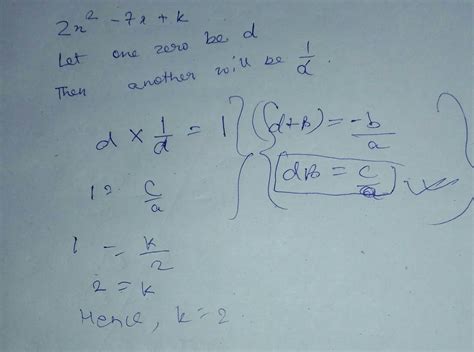 2x² - 7x + k
Let one zero be d
Then another will be 1/d.
d × 1/d = 1 } (d+B) = -b/a
dB = c/a
1 = c/a
1 = k/2
2 = k
Hence, k = 2